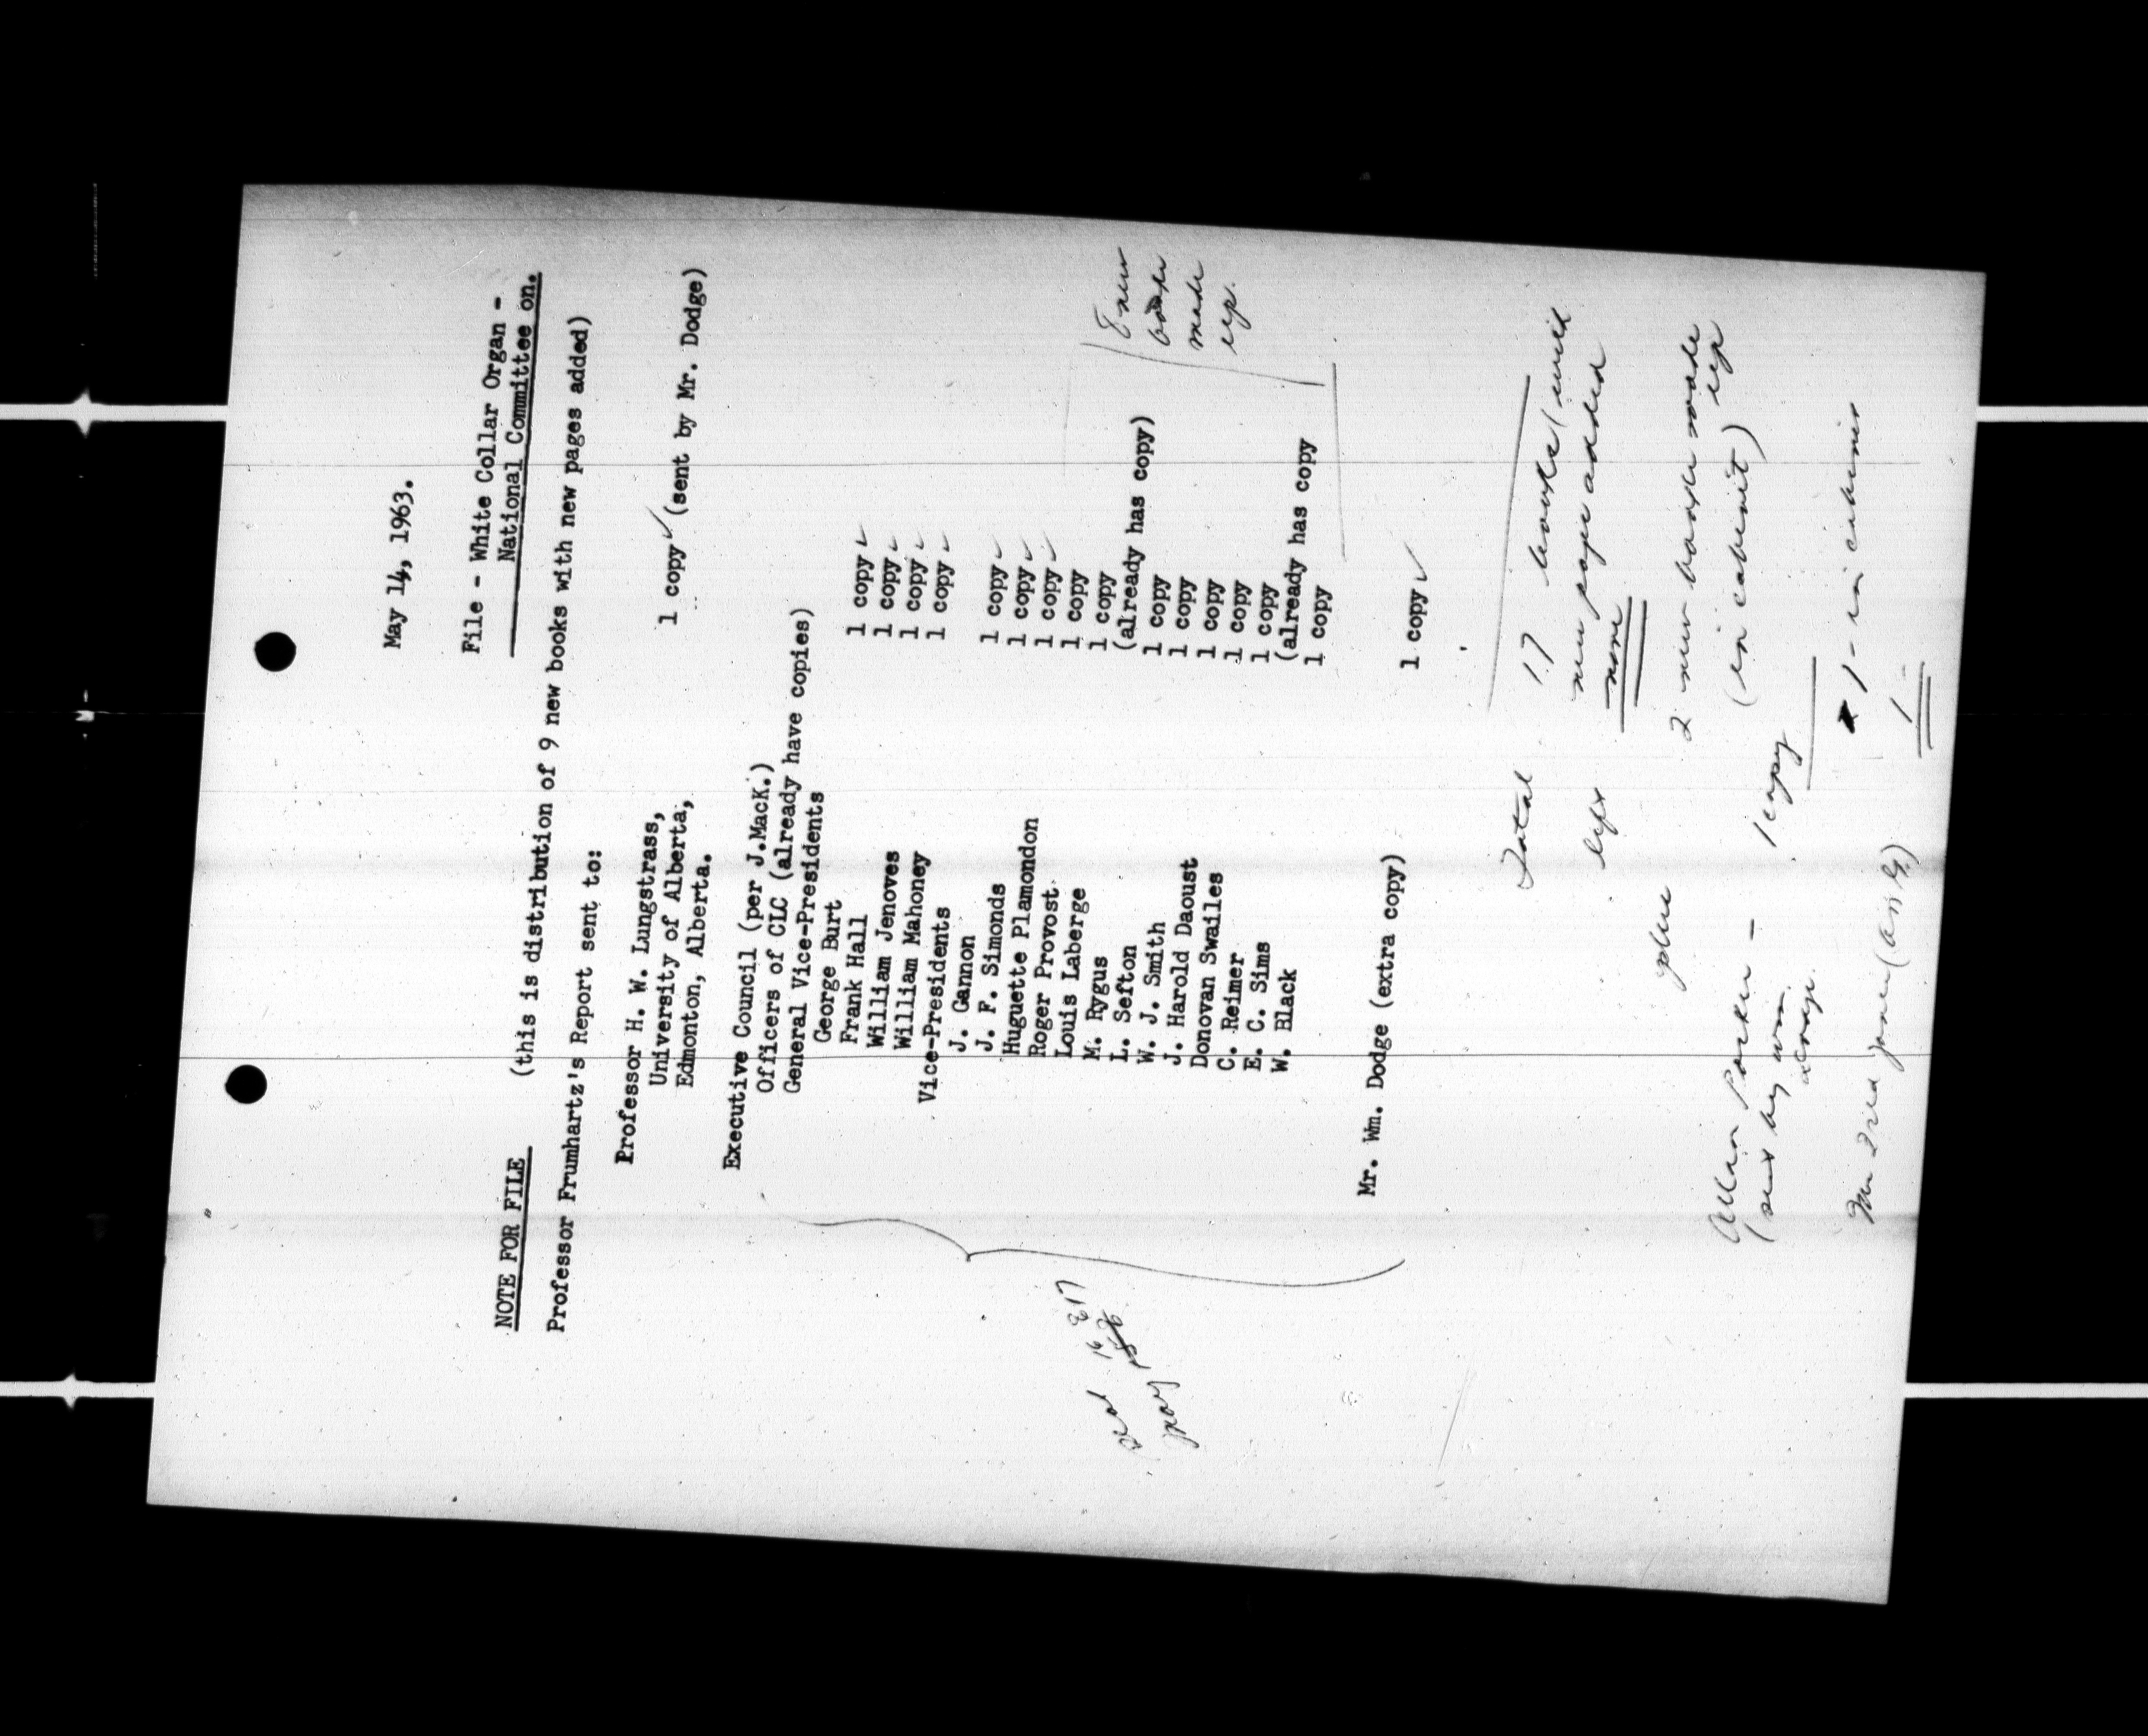 May 14, 1963.
File - White Collar Organ -
National Committee on.
NOTE FOR FILE (this is distribution of 9 new books with new pages added)
Professor Frumhartz's Report sent to:
Professor H. W. Lungstrass,
University of Alberta, 1 copy ✓ (sent by Mr. Dodge)
Edmonton, Alberta.
Executive Council (per J.MacK.)
Officers of CLC (already have copies)
General Vice-Presidents
George Burt 1 copy ✓
Frank Hall 1 copy ✓
William Jenoves 1 copy ✓
William Mahoney 1 copy ✓
Vice-Presidents
J. Gannon 1 copy ✓
J. F. Simonds 1 copy ✓
Huguette Plamondon 1 copy ✓
Roger Provost 1 copy
Louis Laberge 1 copy
M. Rygus (already has copy)
L. Sefton 1 copy
W. J. Smith 1 copy
J. Harold Daoust 1 copy
Donovan Swailes 1 copy
C. Reimer 1 copy
E. C. Sims (already has copy
W. Black 1 copy
8 new
books
made
up.
sent 16
May
Mr. Wm. Dodge (extra copy) 1 copy ✓
Total 17 books (with
new page added
left none
plus 2 new books made up
(in cabinet)
Allan - 1 copy
(sent by wm.
1 - in cabinet
Jones 1